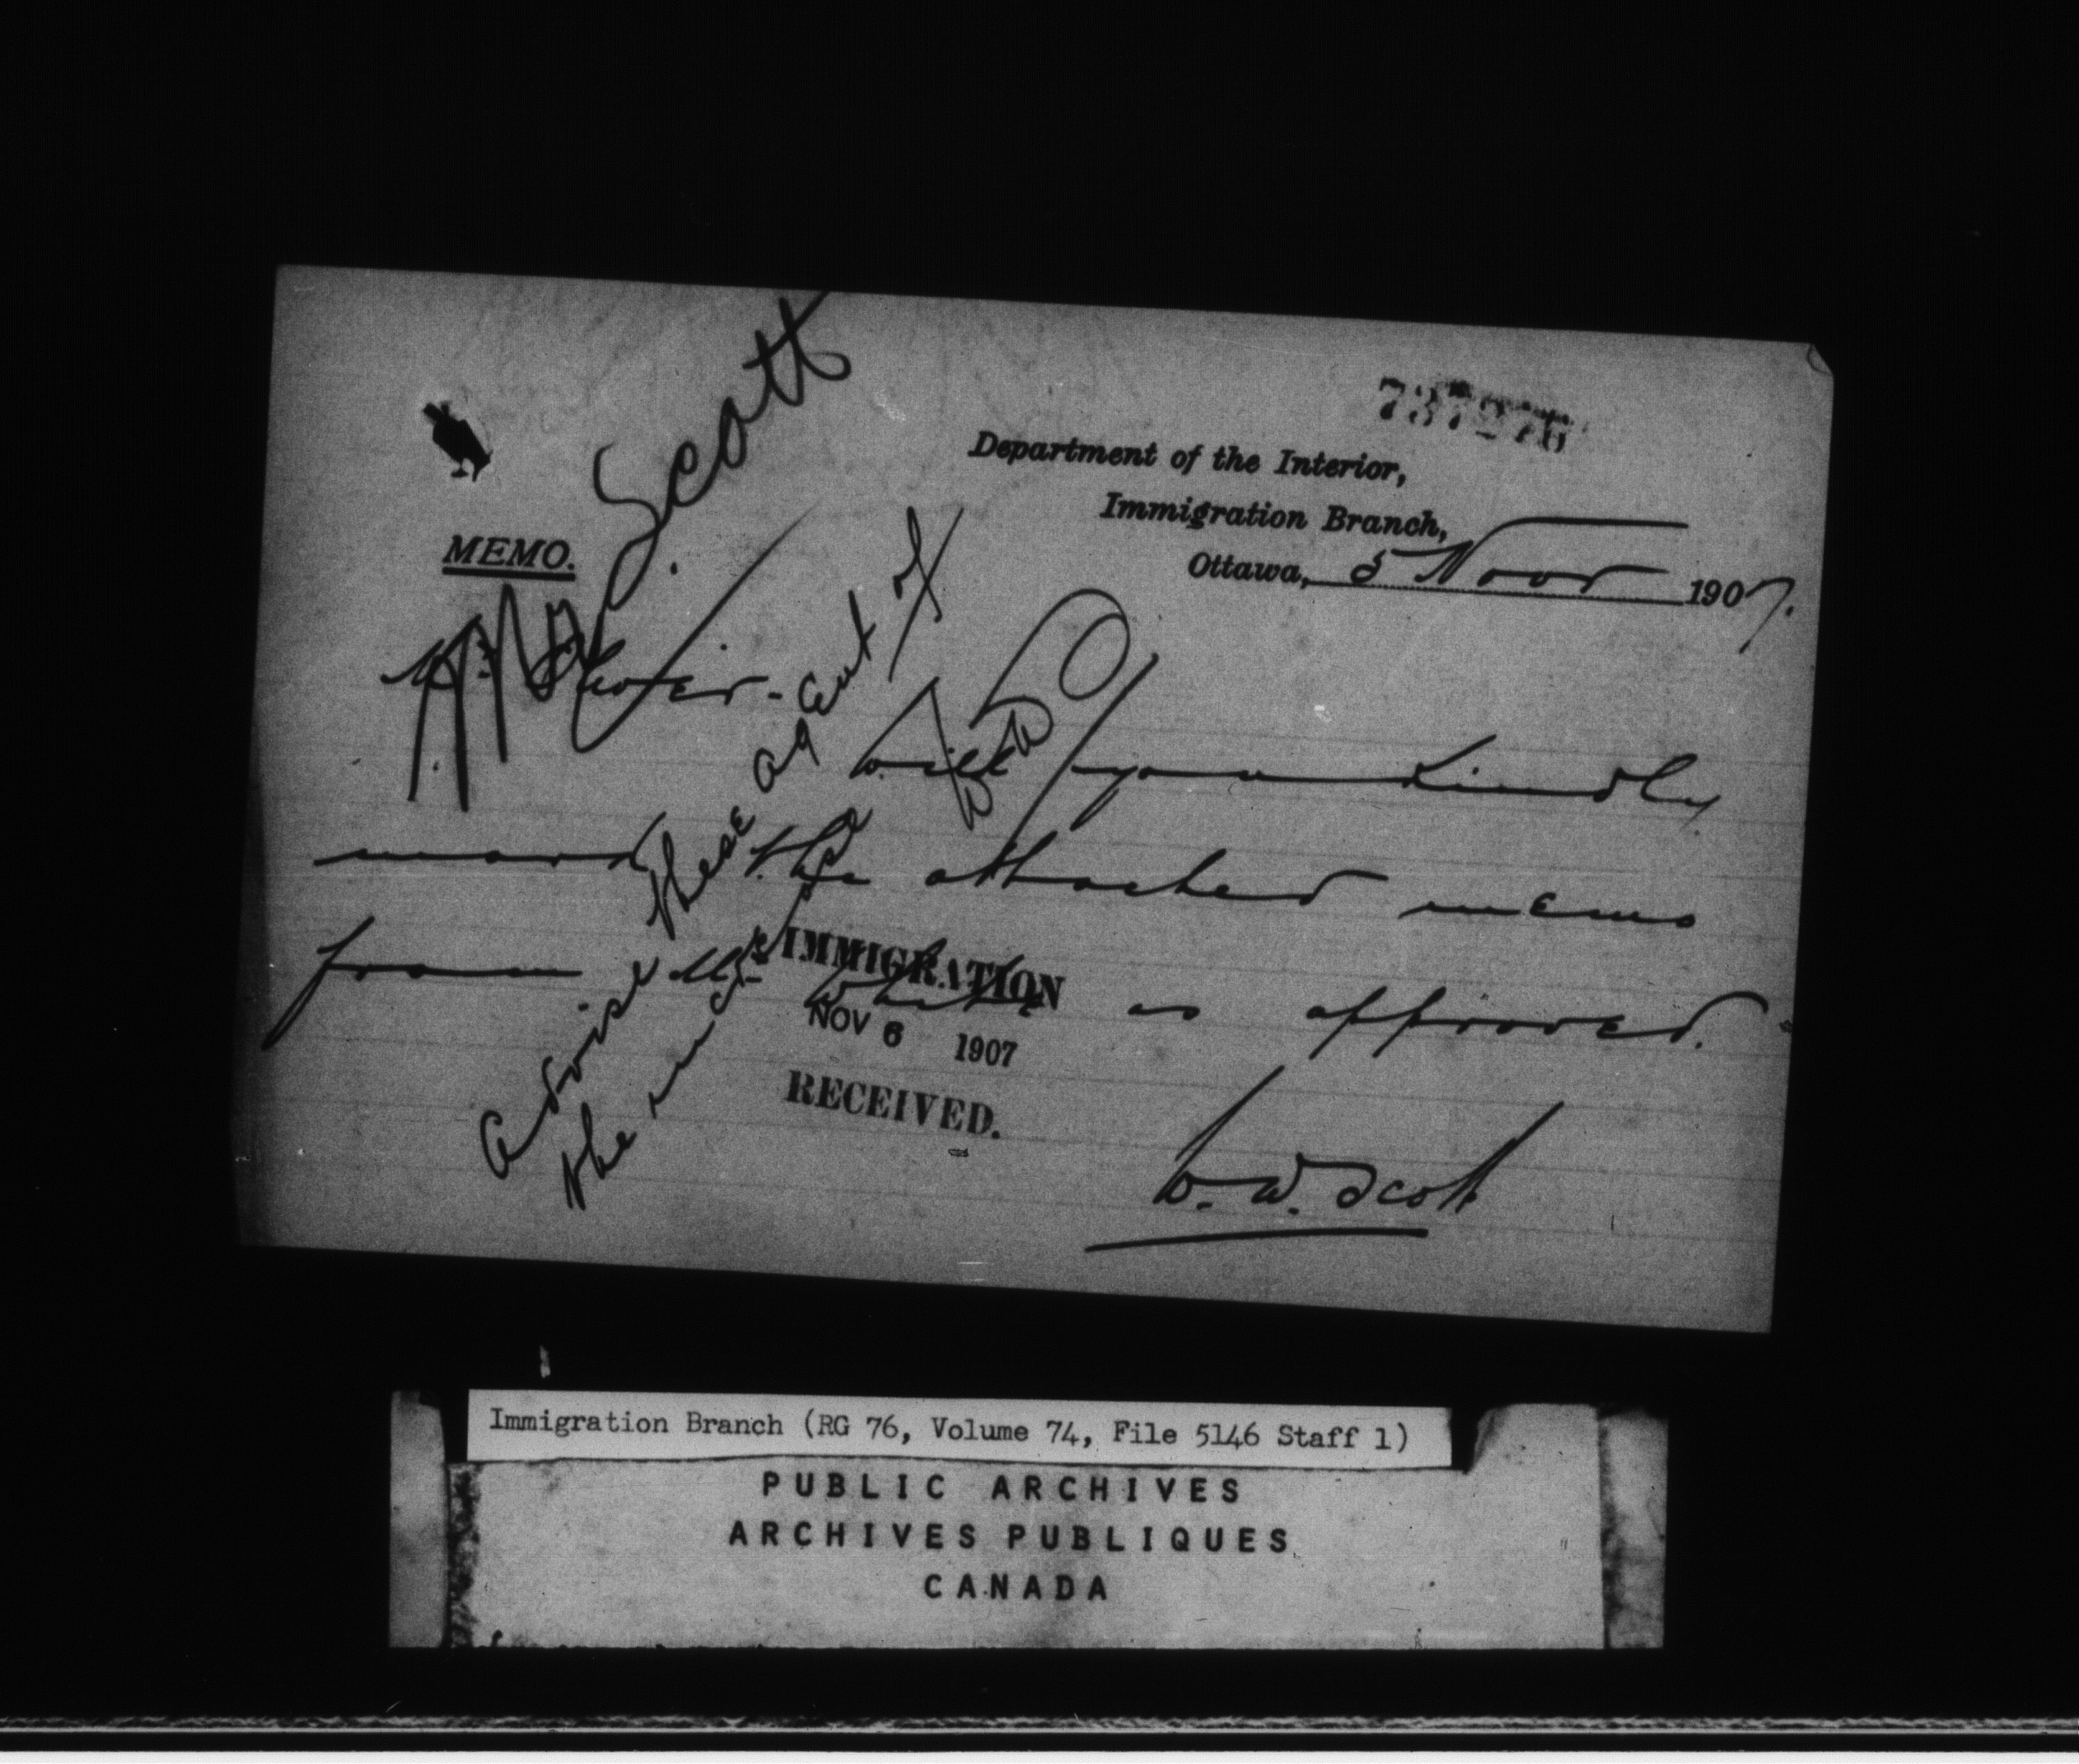 737276
Department of the Interior,
Immigration Branch,
Ottawa, 5 Nov 1907.
MEMO.
Scott
will you kindly
mark the attached memo
from Mr White as approved.
W. W. Scott
advise these agent of
the
IMMIGRATION
NOV 6 1907
RECEIVED.
Immigration Branch (RG 76, Volume 74, File 5146 Staff 1)
PUBLIC ARCHIVES
ARCHIVES PUBLIQUES
CANADA